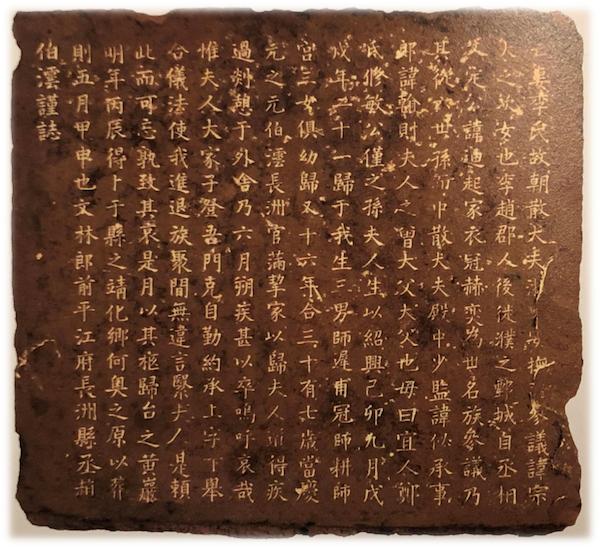 李氏故朝散大夫撫參議諱宗
大之次女也李趙郡人後徙濮之鄄城自丞相
文定公諱迪起家衣冠赫奕為世名族參議乃
其從世孫而中散大夫殿中少監諱佖承事
郎諱翰則夫人之曾大父大父也母曰宜人鄭
氏修敏公僅之孫夫人生以紹興己卯九月戊
戌年二十一歸于我生三男師遲甫冠師耕師
宮三女俱幼歸又十六年合三十有七歲當慶
元之元伯澐長洲官滿挈家以歸夫人道得疾
過剡憩于外舍乃六月朔疾甚以卒嗚呼哀哉
惟夫人大家子登吾門克自勤約承上字下舉
合儀法使我進退族聚間無違言緊夫人是賴
此而可忘孰致其哀是月以其柩歸台之黃巖
明年丙辰得卜于縣之靖化鄉何奧之原以葬
則五月甲申也文林郎前平江府長洲縣丞趙
伯澐謹誌